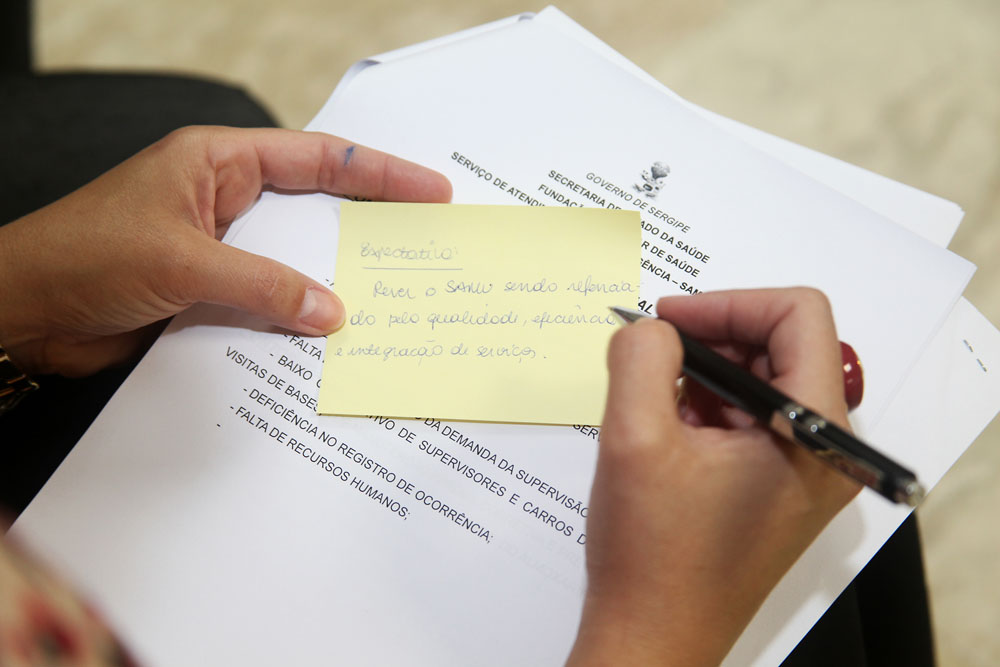 GOVERNO DE SERGIPE
SECRETARIA DE ADO DA SAÚDE
FUNDAÇ AR DE SAÚDE
SERVIÇO DE ATENDI GÊNCIA – SAM
AL
Expectativa:
Rever o SAMU sendo referencia
do pela qualidade, eficiência
e integração de serviços.
- FALTA
- BAIXO DA DEMANDA DA SUPERVISÃO
VISITAS DE BASES TIVO DE SUPERVISORES E CARROS D
- DEFICIÊNCIA NO REGISTRO DE OCORRÊNCIA;
- FALTA DE RECURSOS HUMANOS;
-